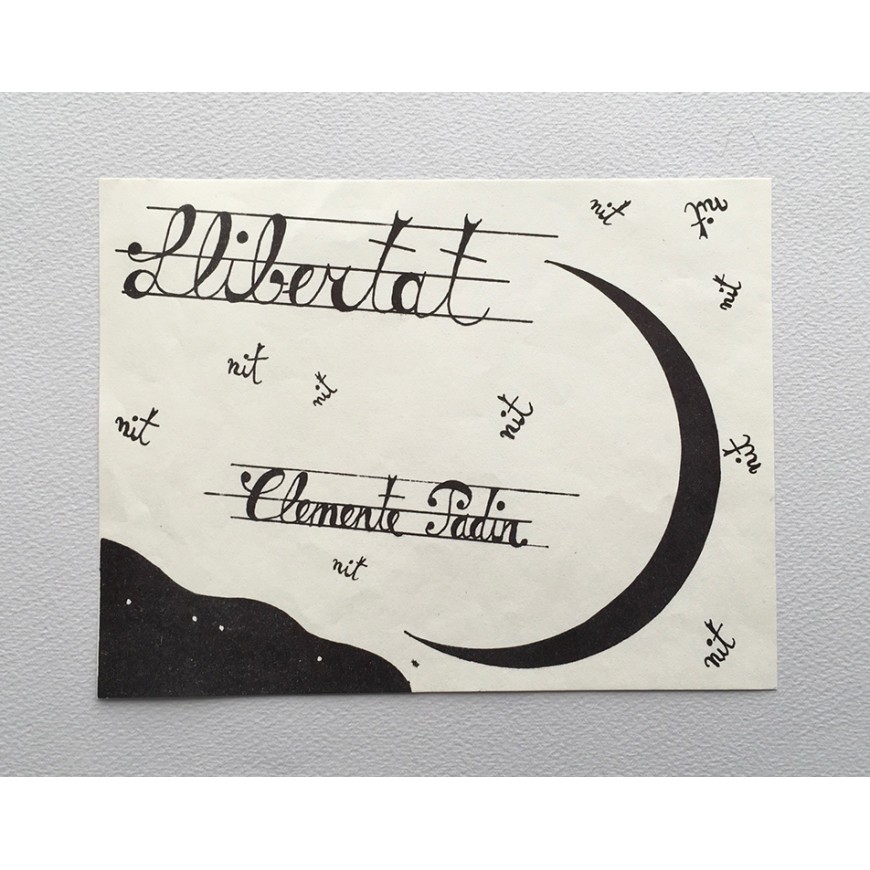 nit
nit
Llibertat
nit
nit
nit
nit
nit
nit
Clemente Padin
nit
nit